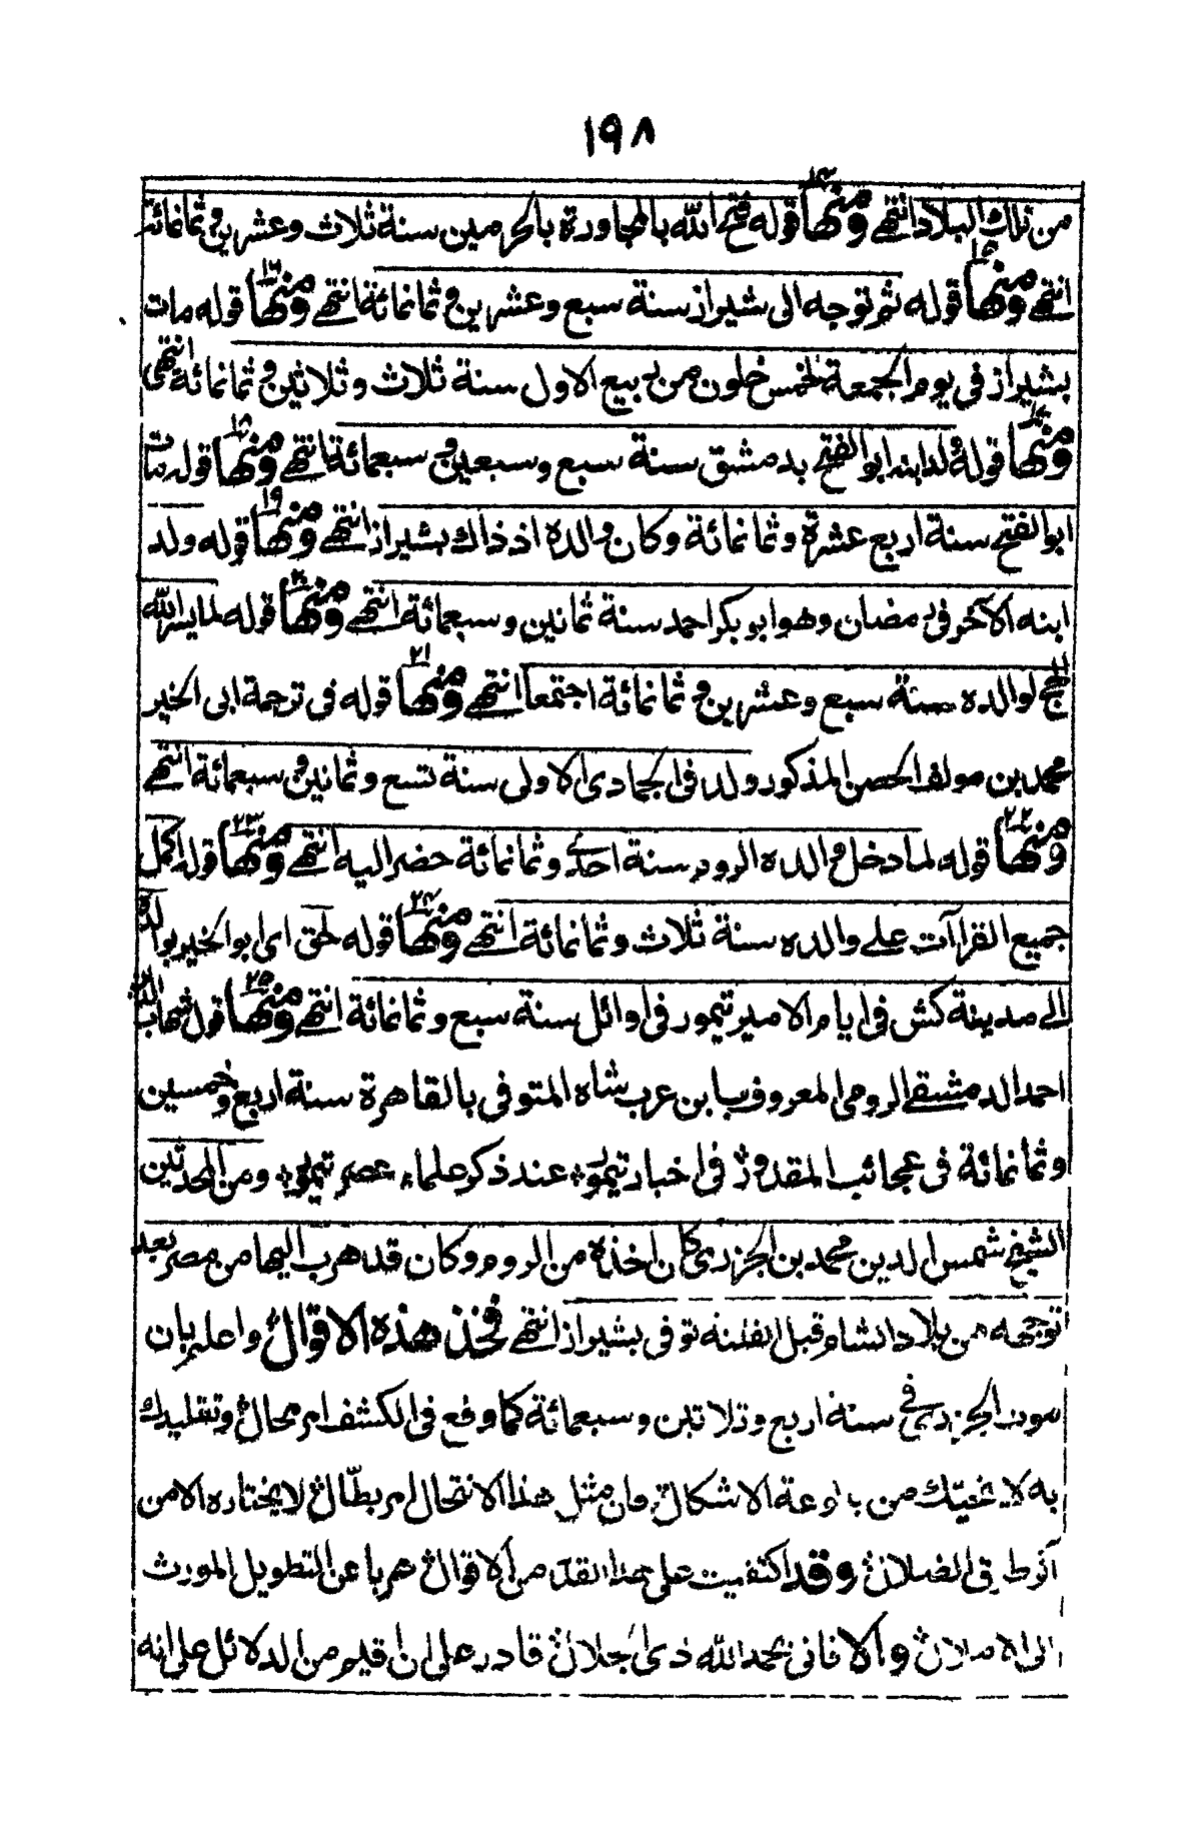 ١٩٨
من تلك البلاد انتهى ومنها ١٤ قوله فتح الله بالمجاورة بالحرمين سنة ثلاث وعشرين وثمانمائة
انتهى ومنها ١٥ قوله ثم توجه الى شيراز سنة سبع وعشرين وثمانمائة انتهى ومنها ١٦ قوله مات
بشيراز في يوم الجمعة لخمس خلون من ربيع الاول سنة ثلاث وثلاثين وثمانمائة انتهى
ومنها ١٧ قوله ولد ابنه ابو الفتح بدمشق سنة سبع وسبعين وسبعمائة انتهى ومنها ١٨ قوله مات
ابو الفتح سنة اربع عشرة وثمانمائة وكان والده اذ ذاك بشيراز انتهى ومنها ١٩ قوله ولد
ابنه الآخر في رمضان وهو ابو بكر احمد سنة ثمانين وسبعمائة انتهى ومنها ٢٠ قوله لما يسر الله
الحج لوالده سنة سبع وعشرين وثمانمائة اجتمعا انتهى ومنها ٢١ قوله في ترجمة ابي الخير
محمد بن مولف الحصن المذكور ولد في الجمادى الاولى سنة تسع وثمانين وسبعمائة انتهى
ومنها ٢٢ قوله لما دخل والده الروم سنة احدى وثمانمائة حضر اليه انتهى ومنها ٢٣ قوله اكمل
جميع القراآت على والده سنة ثلاث وثمانمائة انتهى ومنها ٢٤ قوله لحق اى ابو الخير بوالده
الى مدينة كش في ايام الامير تيمور في اوائل سنة سبع وثمانمائة انتهى ومنها ٢٥ قول شهاب الدين
احمد الدمشقي الرومي المعروف بابن عرب شاه المتوفى بالقاهرة سنة اربع وخمسين
وثمانمائة في عجائب المقدور في اخبار تيمور عند ذكر علماء عصر تيمور ومن المحدثين
الشيخ شمس الدين محمد بن الجزري كان اخذه من الروم وكان قد هرب اليها من مصر بعد
توجهه من بلاد الشام قبل الفتنه توفى بشيراز انتهى فخذ هذه الاقوال واعلم بان
موت الجزري في سنة اربع وثلاثين وسبعمائة كما وقع في الكشف امر محال وتقليدك
به لا ينجيك من بالوعة الاشكال فان مثل هذا الانتحال امر بطّال لا يختاره الا من
آنرط في الضلال وقد اكتفيت على هذا القدر من الاقوال هربا عن التطويل المورث
الى الاملال والا فاني بحمد الله ذي الجلال قادر على ان اقيم من الدلائل على انه